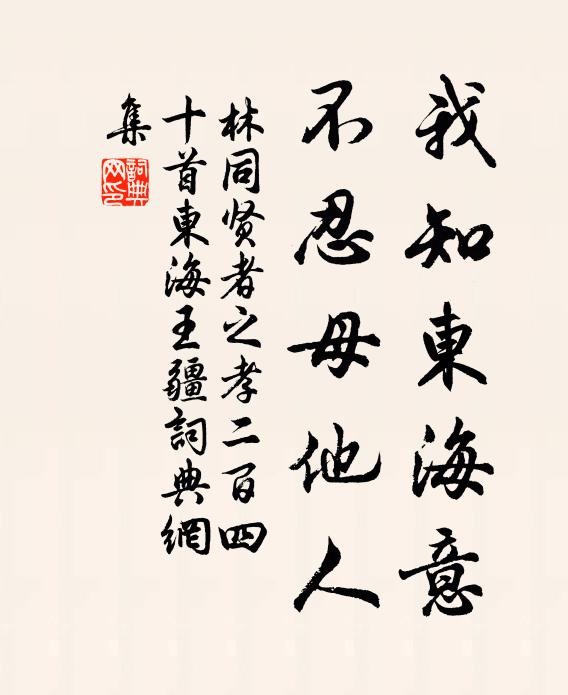 我知東海意
不忍母他人
林同贤者之孝二百四
十首東海王疆詞典網
集
詞典網印